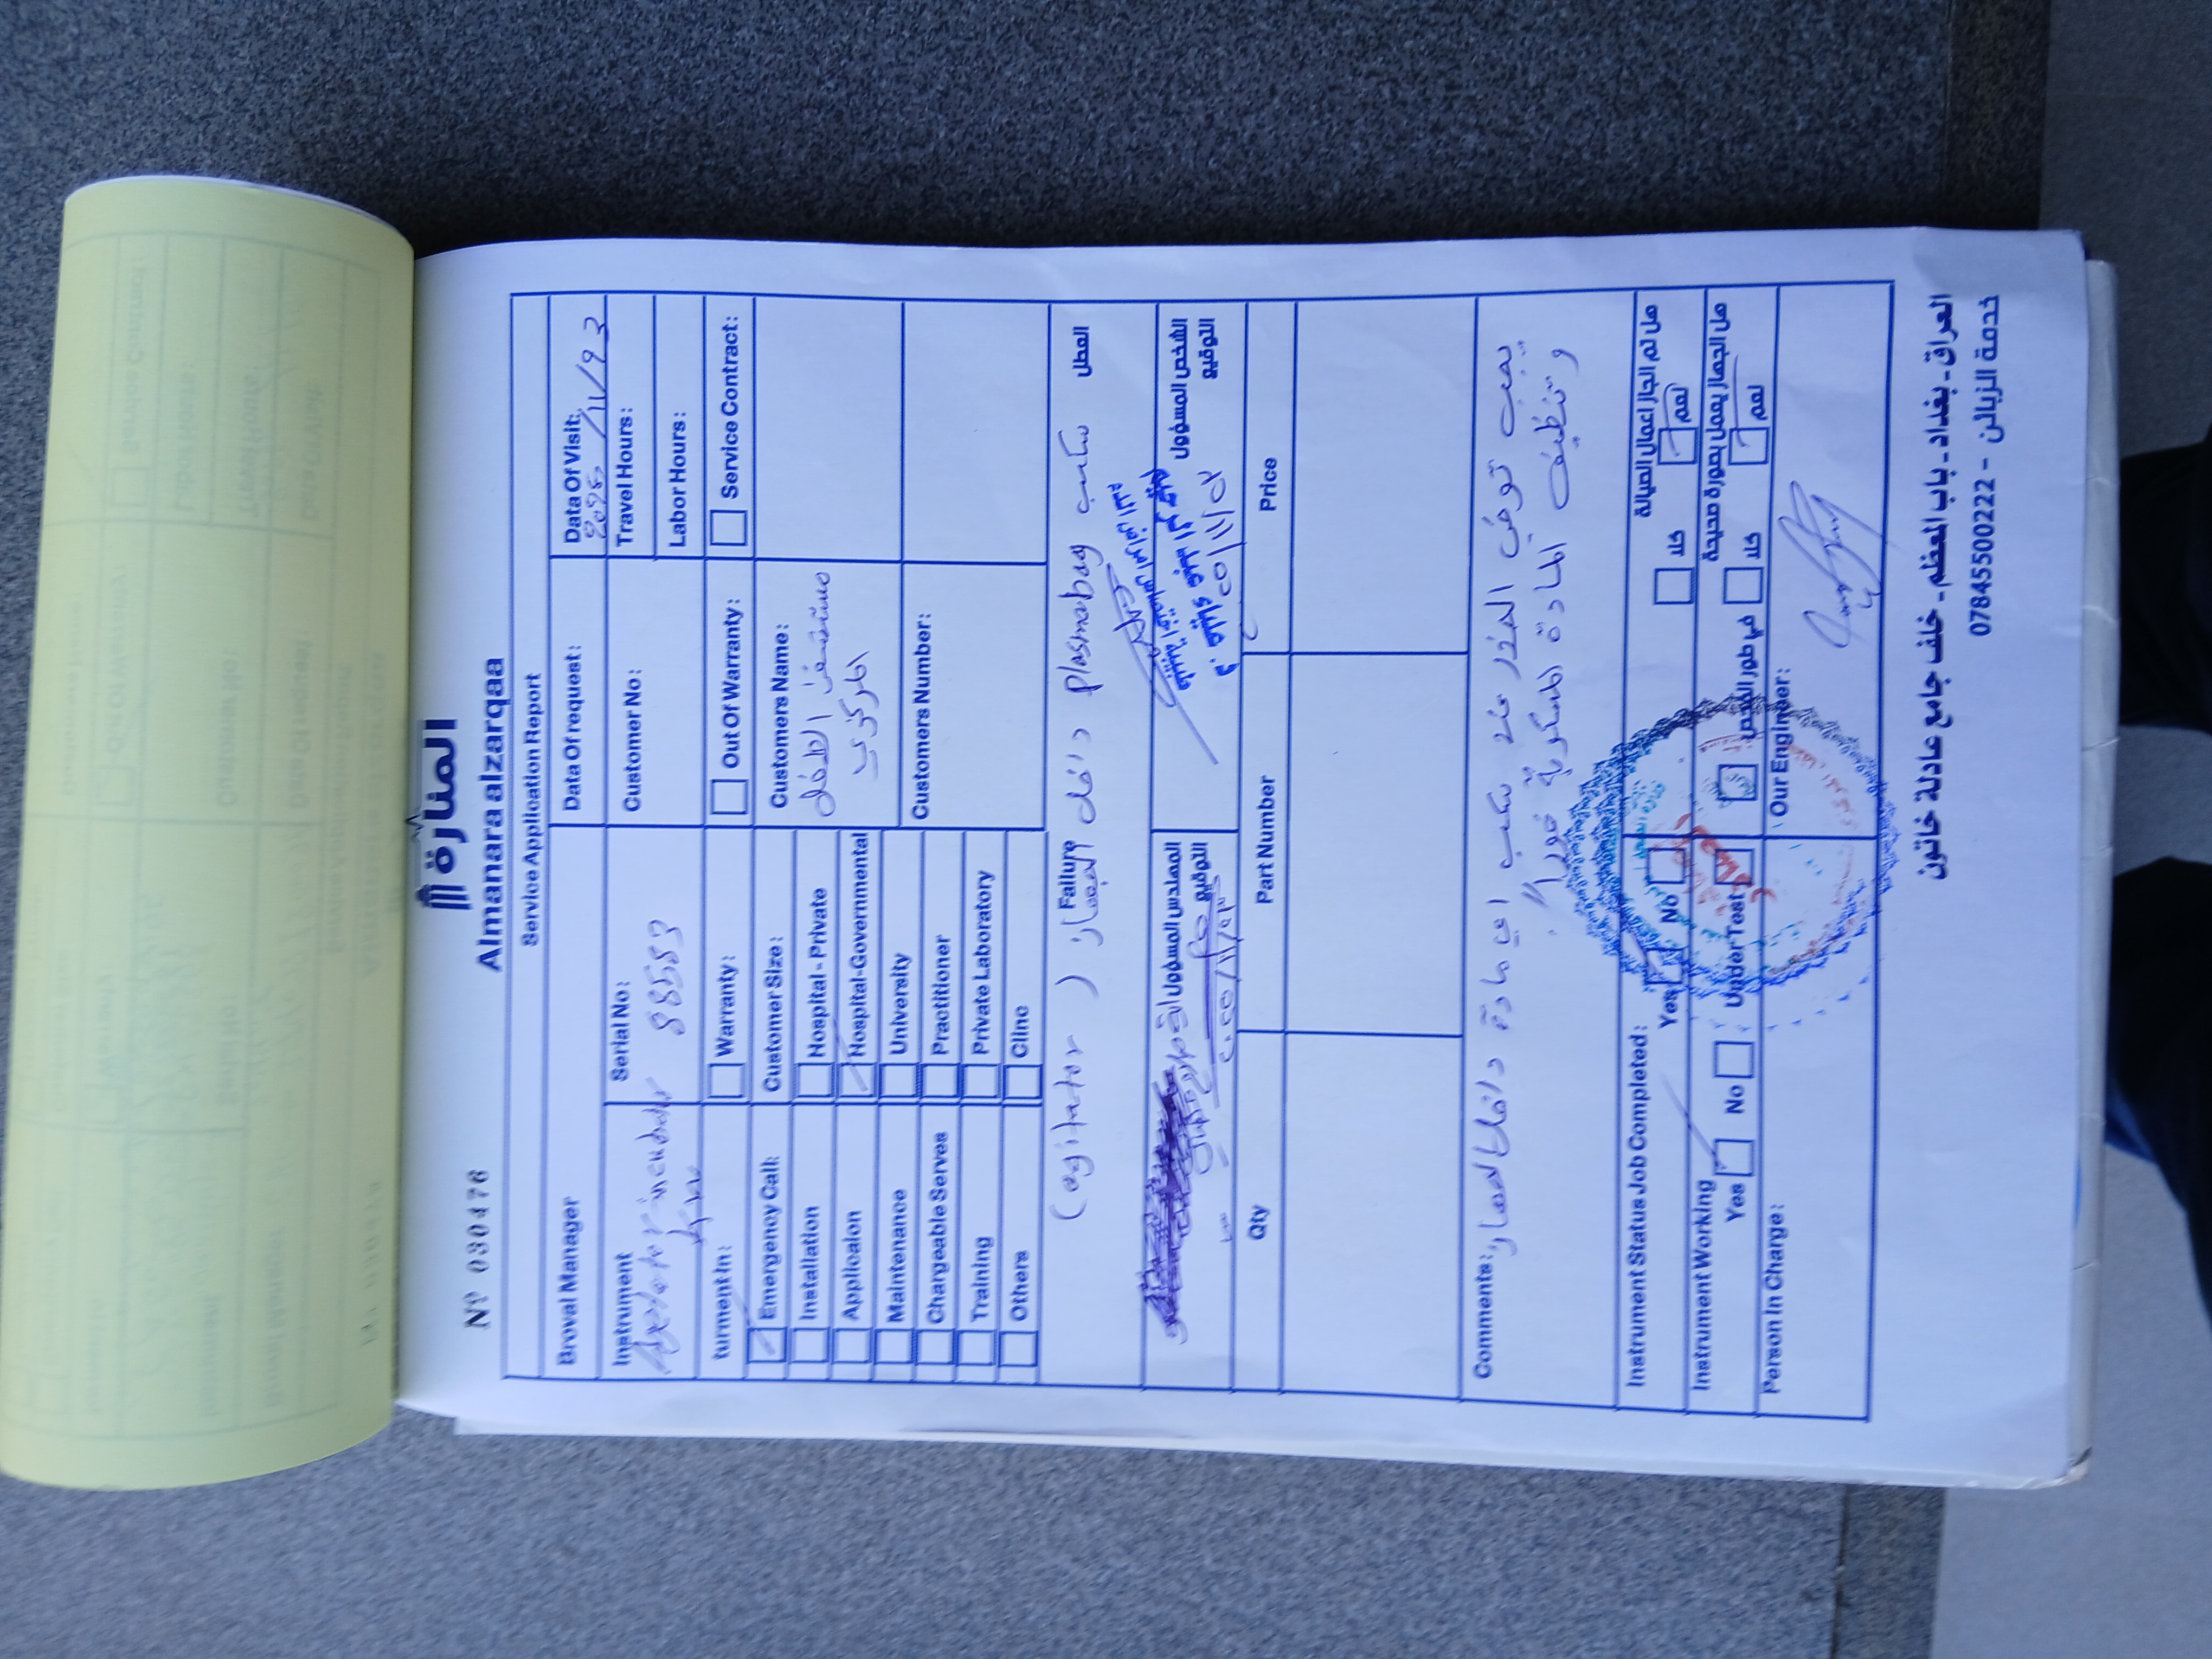 المنارة
Almanara alzarqaa
Nº 030476
Service Application Report
Broval Manager
Data Of request:
Data Of Visit:
2025/11/23
Instrument
incubator
Serial No:
88583
Customer No:
Travel Hours:
Labor Hours:
turment in:
Warranty:
Out Of Warranty:
Service Contract:
Emergency Call:
Customer Size:
Customers Name:
مستشفى الطفل
المركزي
Installation
Hospital - Private
Applicaion
Hospital-Governmental
Maintenance
University
Customers Number:
Chargeable Serves
Practitioner
Training
Private Laboratory
Others
Clinc
Failure
العطل
سكب plasmabag داخل الجهاز (agitator)
المهندس المسؤول
التوقيع
الشخص المسؤول
التوقيع
Qty
Part Number
Price
Comments:
يجب توخي الحذر عند سكب اي مادة داخل الجهاز
وتنظيف المادة المسكوبة فوراً
Instrument Status Job Completed:
Yes
No
كلا
نعم
هل تم انجاز اعمال الصيانة
Instrument Working
Yes
No
Under Test
في طور الفحص
كلا
نعم
هل الجهاز يعمل بصورة صحيحة
Person In Charge:
Our Enginer:
العراق - بغداد - باب المعظم - خلف جامع عادلة خاتون
خدمة الزبائن - 07845500222